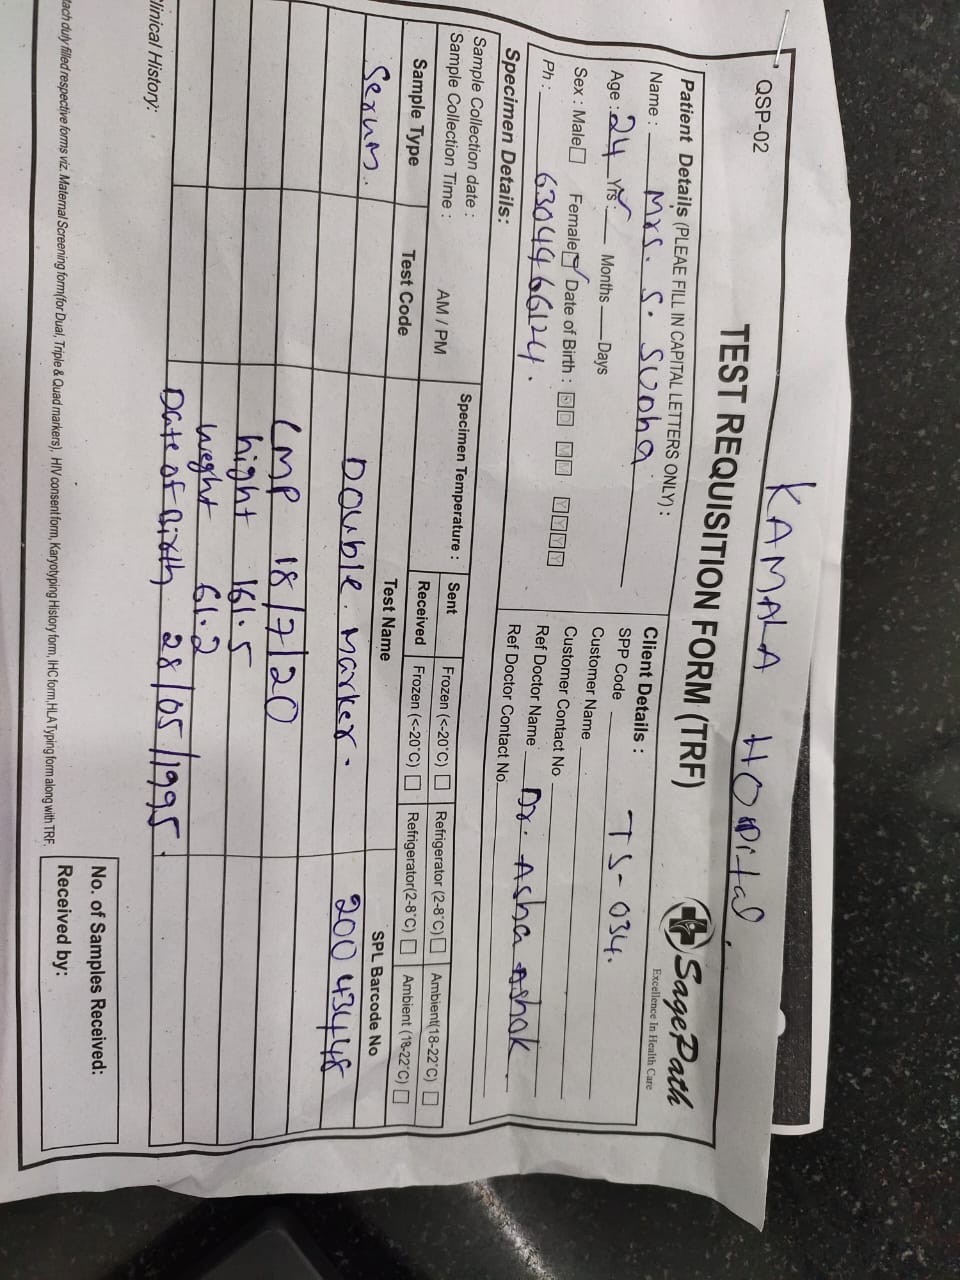 KAMALA HOPital
QSP-02
TEST REQUISITION FORM (TRF)
SagePath
Excellence In Health Care
Patient Details (PLEAE FILL IN CAPITAL LETTERS ONLY) :
Name : Mrs. S. Sunha
Age : 24 Yrs. Months Days
Sex : Male Female Date of Birth : D D M M Y Y Y Y
Ph : 6304466124.
Client Details :
SPP Code TS-034.
Customer Name
Customer Contact No
Ref Doctor Name Dr. Asha Ashok.
Ref Doctor Contact No
Specimen Details:
Sample Collection date :
Sample Collection Time : AM / PM
Specimen Temperature :
Sent Frozen (<-20°C) Refrigerator (2-8°C) Ambient(18-22°C)
Received Frozen (<-20°C) Refrigerator(2-8°C) Ambient (18-22°C)
Sample Type Test Code Test Name SPL Barcode No
Serum. Double. Marker. 20043448
LMP 18/7/20
hight 161.5
weght 61.2
Date of Birth 28/05/1995.
linical History:
No. of Samples Received:
Received by:
tach duly filled respective forms viz. Maternal Screening form(for Dual, Triple & Quad markers), HIV consent form, Karyotyping History form, IHC form,HLA Typing form along with TRF.